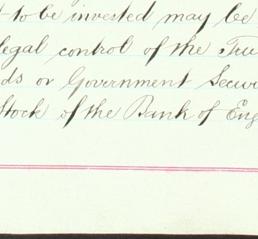 to be invested may be
legal control of the Tru
ds or Government Secur
Stock of the Bank of Eng